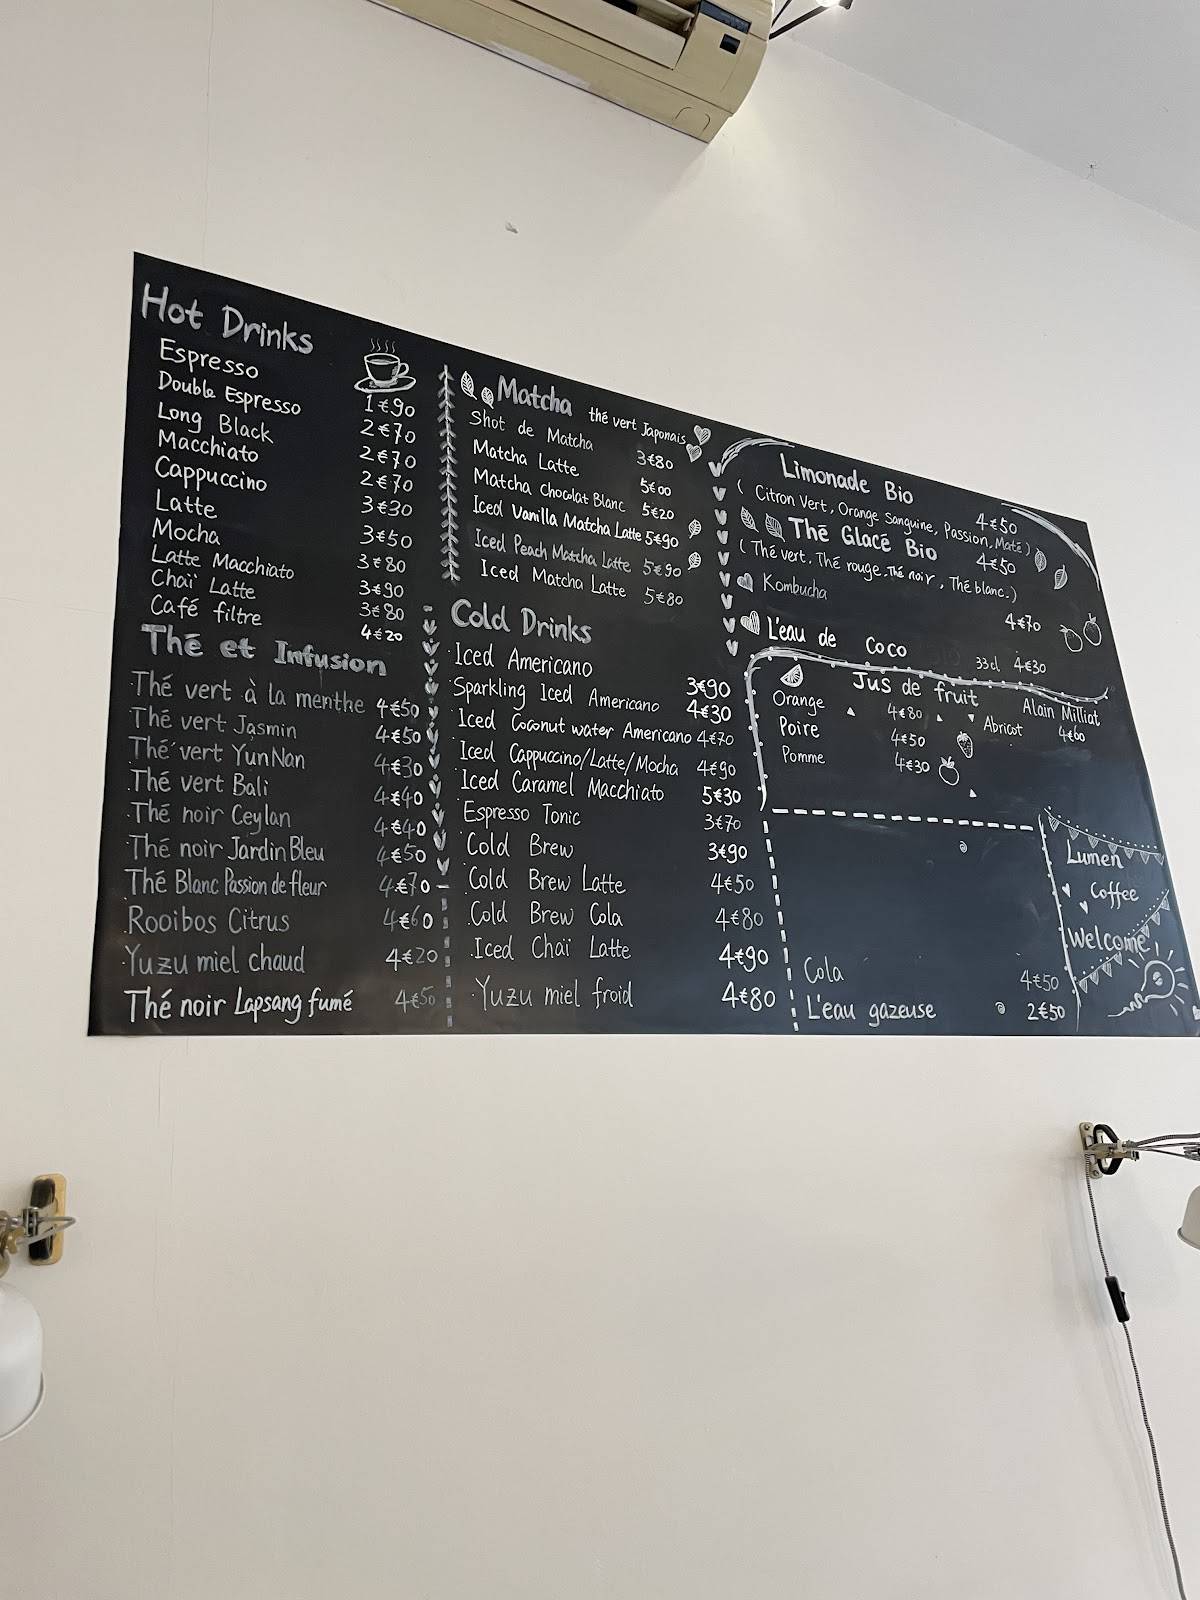 Hot Drinks
Espresso 1€90
Double Espresso 2€70
Long Black 2€70
Macchiato 2€70
Cappuccino 3€30
Latte 3€50
Mocha 3€80
Latte Macchiato 3€90
Chaï Latte 3€80
Café filtre 4€20
Thé et Infusion
Thé vert à la menthe 4€50
Thé vert Jasmin 4€50
Thé vert YunNan 4€30
Thé vert Bali 4€40
Thé noir Ceylan 4€40
Thé noir Jardin Bleu 4€50
Thé Blanc Passion de fleur 4€70
Rooibos Citrus 4€60
Yuzu miel chaud 4€20
Thé noir Lapsang fumé 4€50
Matcha thé vert Japonais
Shot de Matcha 3€80
Matcha Latte 5€00
Matcha chocolat Blanc 5€20
Iced Vanilla Matcha Latte 5€90
Iced Peach Matcha Latte 5€90
Iced Matcha Latte 5€80
Cold Drinks
Iced Americano 3€90
Sparkling Iced Americano 4€30
Iced Coconut water Americano 4€70
Iced Cappuccino/Latte/Mocha 4€90
Iced Caramel Macchiato 5€30
Espresso Tonic 3€70
Cold Brew 3€90
Cold Brew Latte 4€50
Cold Brew Cola 4€80
Iced Chaï Latte 4€90
Yuzu miel froid 4€80
Limonade Bio 4€50
( Citron Vert, Orange Sanguine, Passion, Maté )
Thé Glacé Bio 4€50
( Thé vert, Thé rouge, Thé noir, Thé blanc.)
Kombucha 4€70
L'eau de Coco 33cl 4€30
Jus de fruit Alain Milliat
Orange 4€80 Abricot 4€60
Poire 4€50
Pomme 4€30
Cola 4€50
L'eau gazeuse 2€50
Lumen
Coffee
Welcome!